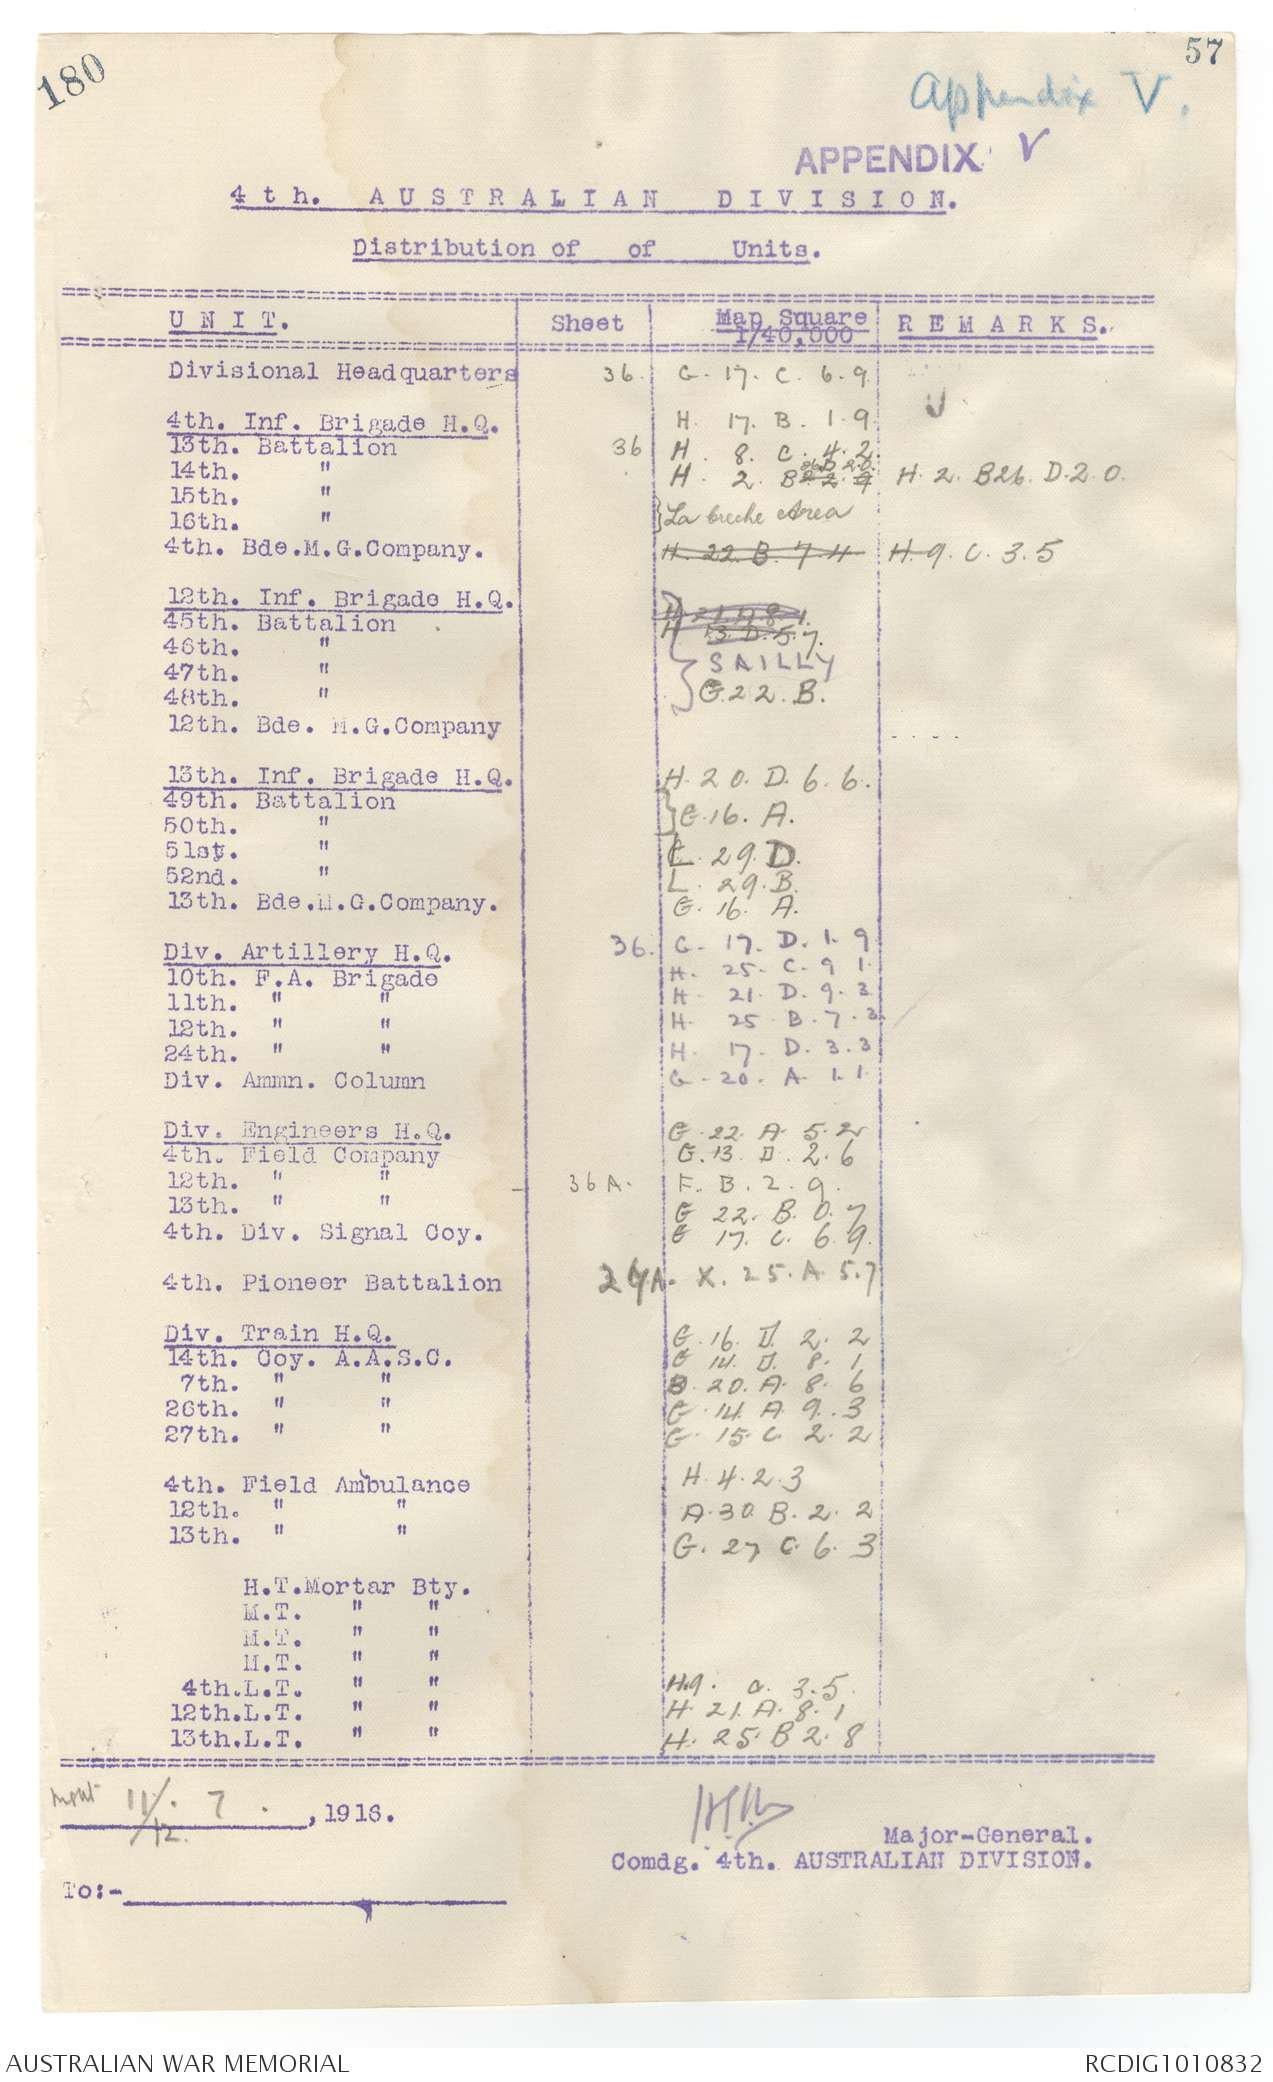 180
57
Appendix V.
APPENDIX V
4th. AUSTRALIAN DIVISION.
Distribution of of Units.
UNIT. Sheet Map Square 1/40,000 REMARKS.
Divisional Headquarters 36. G. 17. C. 6. 9.
4th. Inf. Brigade H.Q. H. 17. B. 1. 9
13th. Battalion 36 H. 8. C. 4. 2.
14th. " H. 2. B H. 2. B26. D. 2. 0.
15th. "
16th. " La creche Area
4th. Bde.M.G.Company. H. 22. B. 7. 4 H. 9. C. 3. 5
12th. Inf. Brigade H.Q. H. 21 A 8. 1.
45th. Battalion H. 13. D. 5. 7.
46th. "
47th. " SAILLY
48th. " G. 22. B.
12th. Bde. M.G.Company
13th. Inf. Brigade H.Q. H. 20. D. 6. 6.
49th. Battalion G. 16. A.
50th. "
51st. " L. 29. D.
52nd. " L. 29. B.
13th. Bde.M.G.Company. G. 16. A.
Div. Artillery H.Q. 36. G. 17. D. 1. 9
10th. F.A. Brigade H. 25. C. 9 1.
11th. " " H. 21. D. 9. 3
12th. " " H. 25 B. 7. 3.
24th. " " H. 17. D. 3. 3
Div. Ammn. Column G. 20. A. 1. 1
Div. Engineers H.Q. G. 22. A. 5. 2
4th. Field Company G. 13. D. 2. 6
12th. " " 36A. F. B. 2. 9.
13th. " " G 22. B. 0. 7
4th. Div. Signal Coy. G 17. C. 6. 9.
4th. Pioneer Battalion X. 25. A. 5. 7
Div. Train H.Q. G. 16. D. 2. 2
14th. Coy. A.A.S.C. G 14. D. 8. 1
7th. " " B. 20. A. 8. 6
26th. " " G. 14. A. 9. 3
27th. " " G. 15. C. 2. 2
4th. Field Ambulance H. 4. 2. 3
12th. " " A. 30. B. 2. 2
13th. " " G. 27 C. 6. 3
H.T.Mortar Bty.
M.T. " "
M.T. " "
M.T. " "
4th.L.T. " " H.9. C. 3. 5.
12th.L.T. " " H. 21. A. 8. 1
13th.L.T. " " H. 25. B 2. 8
11/12. 7. ,1916.
Major-General.
Comdg. 4th. AUSTRALIAN DIVISION.
To:-
AUSTRALIAN WAR MEMORIAL
RCDIG1010832